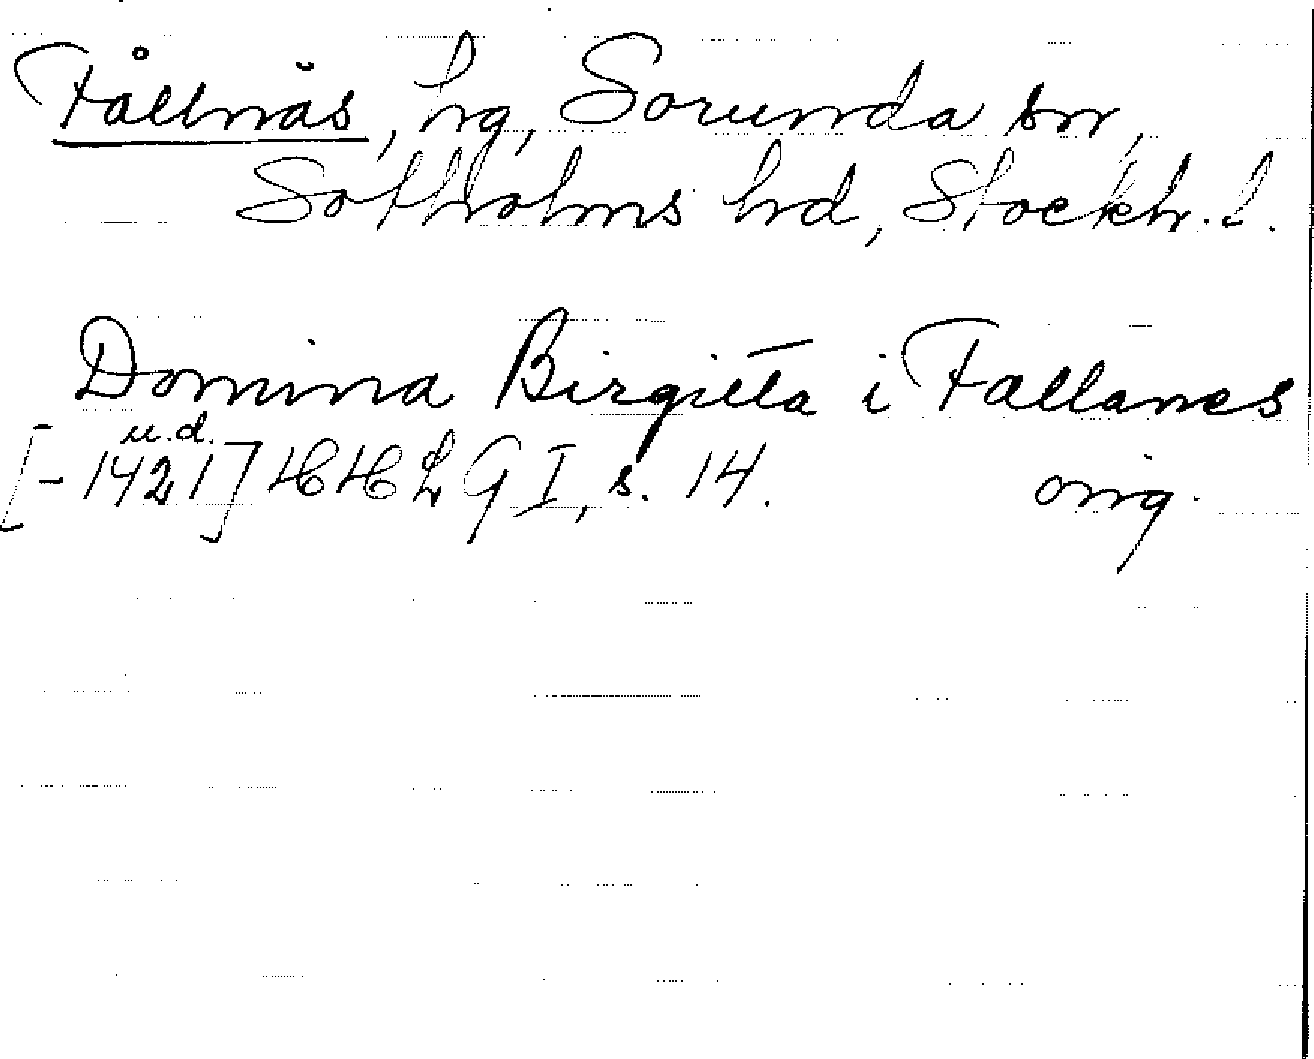 Fållnäs, hg, Sorunda sn,
Sotholms hd, Stockh. l.
Domina Birgitta i Fallanes
u.d.
[-1421] HHLG I, s. 14. orig.